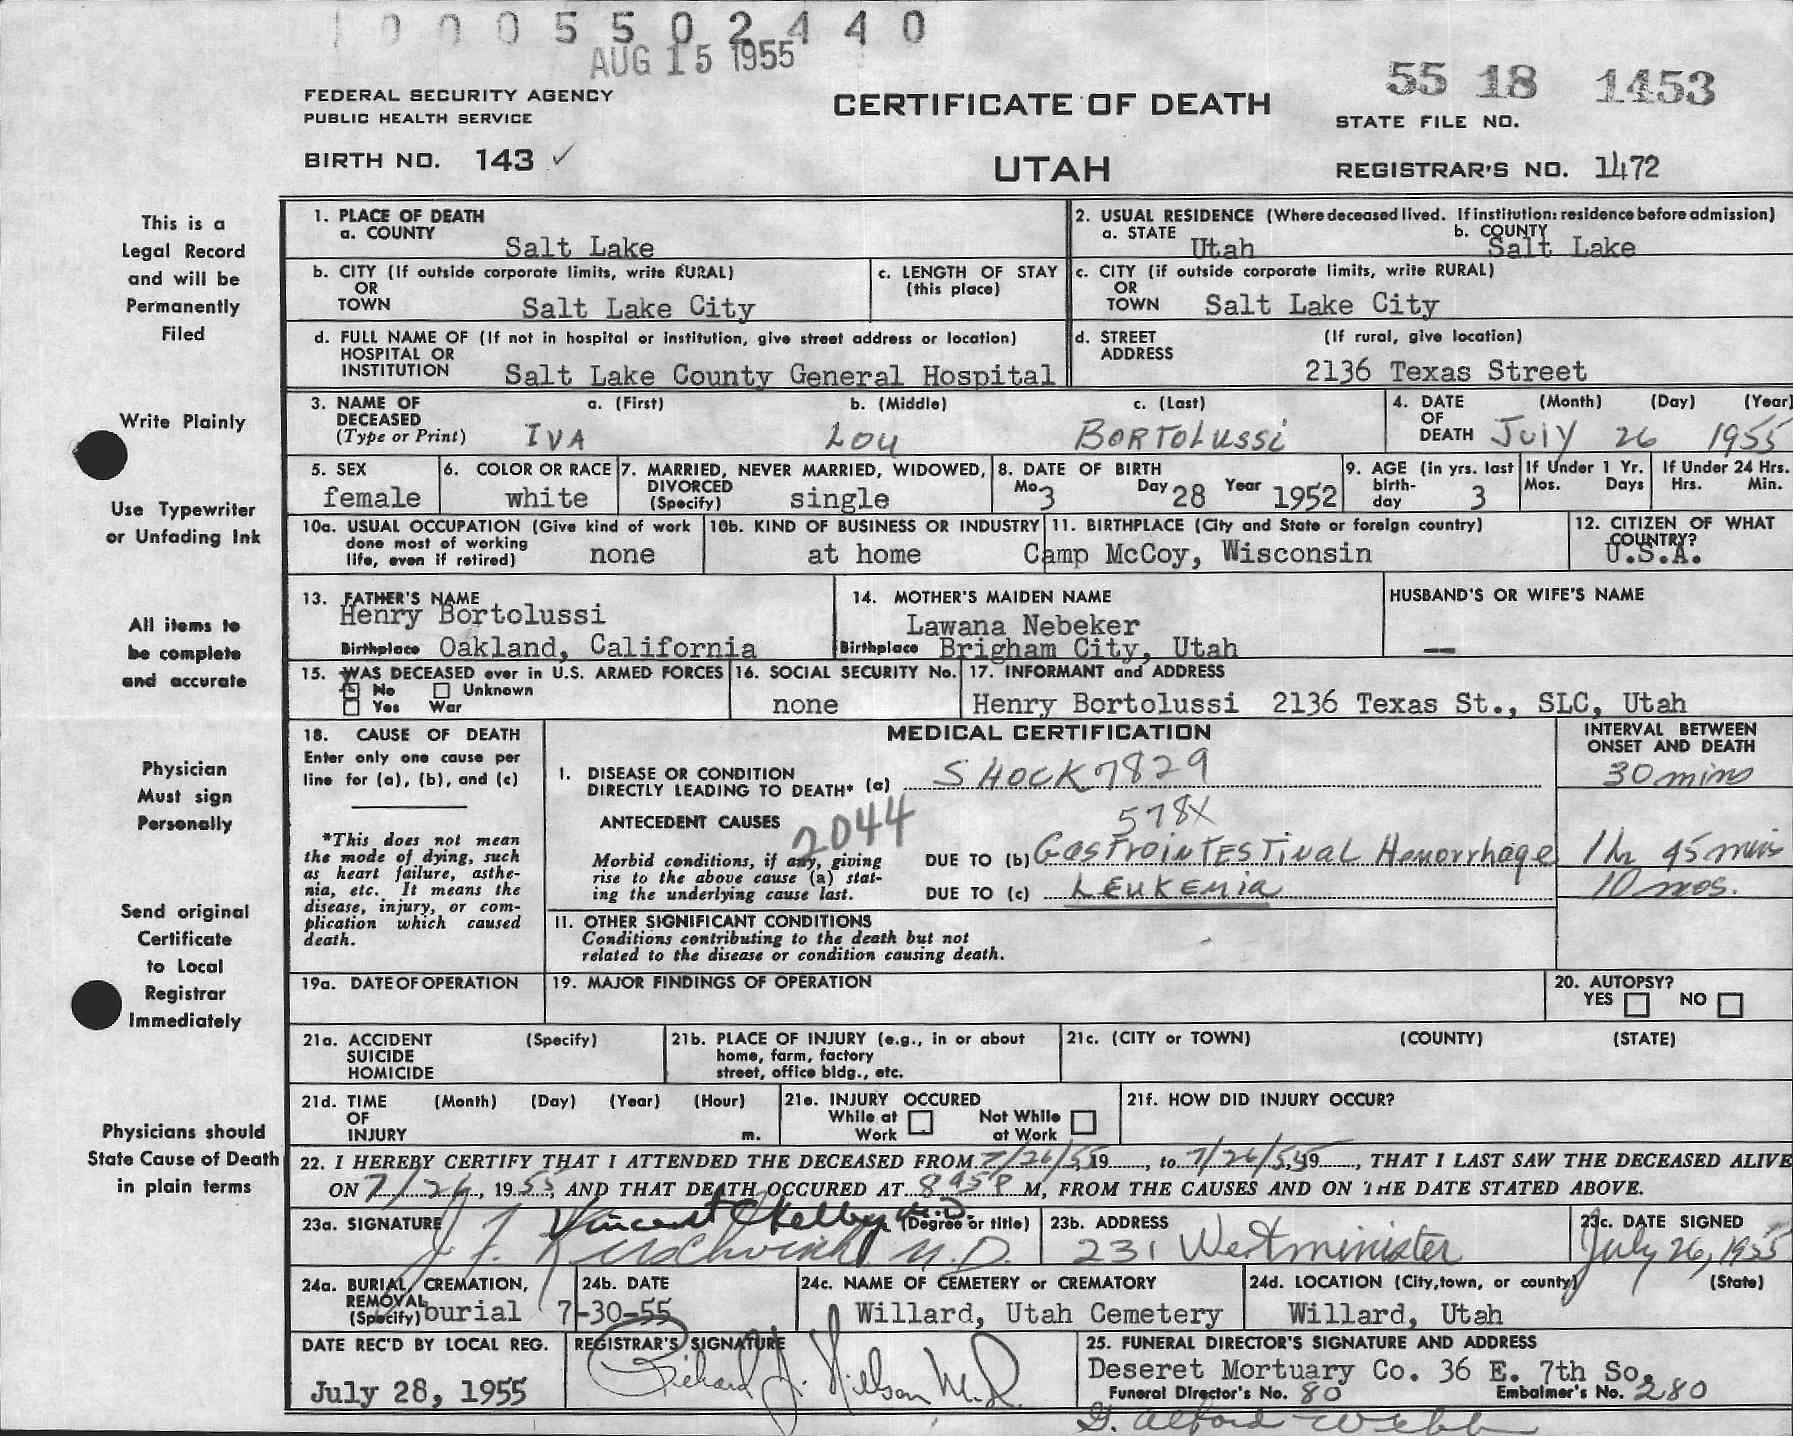 0 0 0 5 5 0 2 4 4 0
AUG 15 1955
55 18 1453
FEDERAL SECURITY AGENCY
PUBLIC HEALTH SERVICE
CERTIFICATE OF DEATH
STATE FILE NO.
BIRTH NO. 143 ✓
UTAH
REGISTRAR'S NO. 1472
This is a
Legal Record
and will be
Permanently
Filed
Write Plainly
Use Typewriter
or Unfading Ink
All items to
be complete
and accurate
Physician
Must sign
Personally
Send original
Certificate
to Local
Registrar
Immediately
Physicians should
State Cause of Death
in plain terms
1. PLACE OF DEATH
a. COUNTY
Salt Lake
2. USUAL RESIDENCE (Where deceased lived. If institution: residence before admission)
a. STATE Utah
b. COUNTY Salt Lake
b. CITY (If outside corporate limits, write RURAL)
OR
TOWN Salt Lake City
c. LENGTH OF STAY
(this place)
c. CITY (if outside corporate limits, write RURAL)
OR
TOWN Salt Lake City
d. FULL NAME OF (If not in hospital or institution, give street address or location)
HOSPITAL OR
INSTITUTION Salt Lake County General Hospital
d. STREET (If rural, give location)
ADDRESS
2136 Texas Street
3. NAME OF a. (First) b. (Middle) c. (Last)
DECEASED
(Type or Print) IVA LOU BORTOLUSSI
4. DATE (Month) (Day) (Year)
OF
DEATH July 26 1955
5. SEX
female
6. COLOR OR RACE
white
7. MARRIED, NEVER MARRIED, WIDOWED,
DIVORCED
(Specify) single
8. DATE OF BIRTH
Mo. 3 Day 28 Year 1952
9. AGE (in yrs. last
birth-
day 3
If Under 1 Yr.
Mos. Days
If Under 24 Hrs.
Hrs. Min.
10a. USUAL OCCUPATION (Give kind of work
done most of working
life, even if retired) none
10b. KIND OF BUSINESS OR INDUSTRY
at home
11. BIRTHPLACE (City and State or foreign country)
Camp McCoy, Wisconsin
12. CITIZEN OF WHAT
COUNTRY?
U.S.A.
13. FATHER'S NAME
Henry Bortolussi
Birthplace Oakland, California
14. MOTHER'S MAIDEN NAME
Lawana Nebeker
Birthplace Brigham City, Utah
HUSBAND'S OR WIFE'S NAME
—
15. WAS DECEASED ever in U.S. ARMED FORCES
No Unknown
Yes War
16. SOCIAL SECURITY No.
none
17. INFORMANT and ADDRESS
Henry Bortolussi 2136 Texas St., SLC, Utah
18. CAUSE OF DEATH
Enter only one cause per
line for (a), (b), and (c)
*This does not mean
the mode of dying, such
as heart failure, asthe-
nia, etc. It means the
disease, injury, or com-
plication which caused
death.
MEDICAL CERTIFICATION
INTERVAL BETWEEN
ONSET AND DEATH
I. DISEASE OR CONDITION
DIRECTLY LEADING TO DEATH* (a) SHOCK 7829
30 mins
ANTECEDENT CAUSES 2044 578X
Morbid conditions, if any, giving
rise to the above cause (a) stat-
ing the underlying cause last.
DUE TO (b) Gastrointestinal Hemorrhage 1 hr 45 mins
DUE TO (c) Leukemia 10 mos.
II. OTHER SIGNIFICANT CONDITIONS
Conditions contributing to the death but not
related to the disease or condition causing death.
19a. DATE OF OPERATION
19. MAJOR FINDINGS OF OPERATION
20. AUTOPSY?
YES NO
21a. ACCIDENT (Specify)
SUICIDE
HOMICIDE
21b. PLACE OF INJURY (e.g., in or about
home, farm, factory
street, office bldg., etc.
21c. (CITY or TOWN) (COUNTY) (STATE)
21d. TIME (Month) (Day) (Year) (Hour)
OF
INJURY m.
21e. INJURY OCCURED
While at Not While
Work at Work
21f. HOW DID INJURY OCCUR?
22. I HEREBY CERTIFY THAT I ATTENDED THE DECEASED FROM 7/26/55 19......, to 7/26/55 19......, THAT I LAST SAW THE DECEASED ALIVE
ON 7/26, 1955, AND THAT DEATH OCCURED AT 8 45P M, FROM THE CAUSES AND ON THE DATE STATED ABOVE.
23a. SIGNATURE Vincent Kelly M.D. (Degree or title)
M.D.
23b. ADDRESS
231 Westminister
23c. DATE SIGNED
July 26, 1955
24a. BURIAL, CREMATION,
REMOVAL
(Specify) burial
24b. DATE
7-30-55
24c. NAME OF CEMETERY or CREMATORY
Willard, Utah Cemetery
24d. LOCATION (City, town, or county) (State)
Willard, Utah
DATE REC'D BY LOCAL REG.
July 28, 1955
REGISTRAR'S SIGNATURE
Richard J. Nilson M.D.
25. FUNERAL DIRECTOR'S SIGNATURE AND ADDRESS
Deseret Mortuary Co. 36 E. 7th So.
Funeral Director's No. 80 Embalmer's No. 280
G. Alford Webb